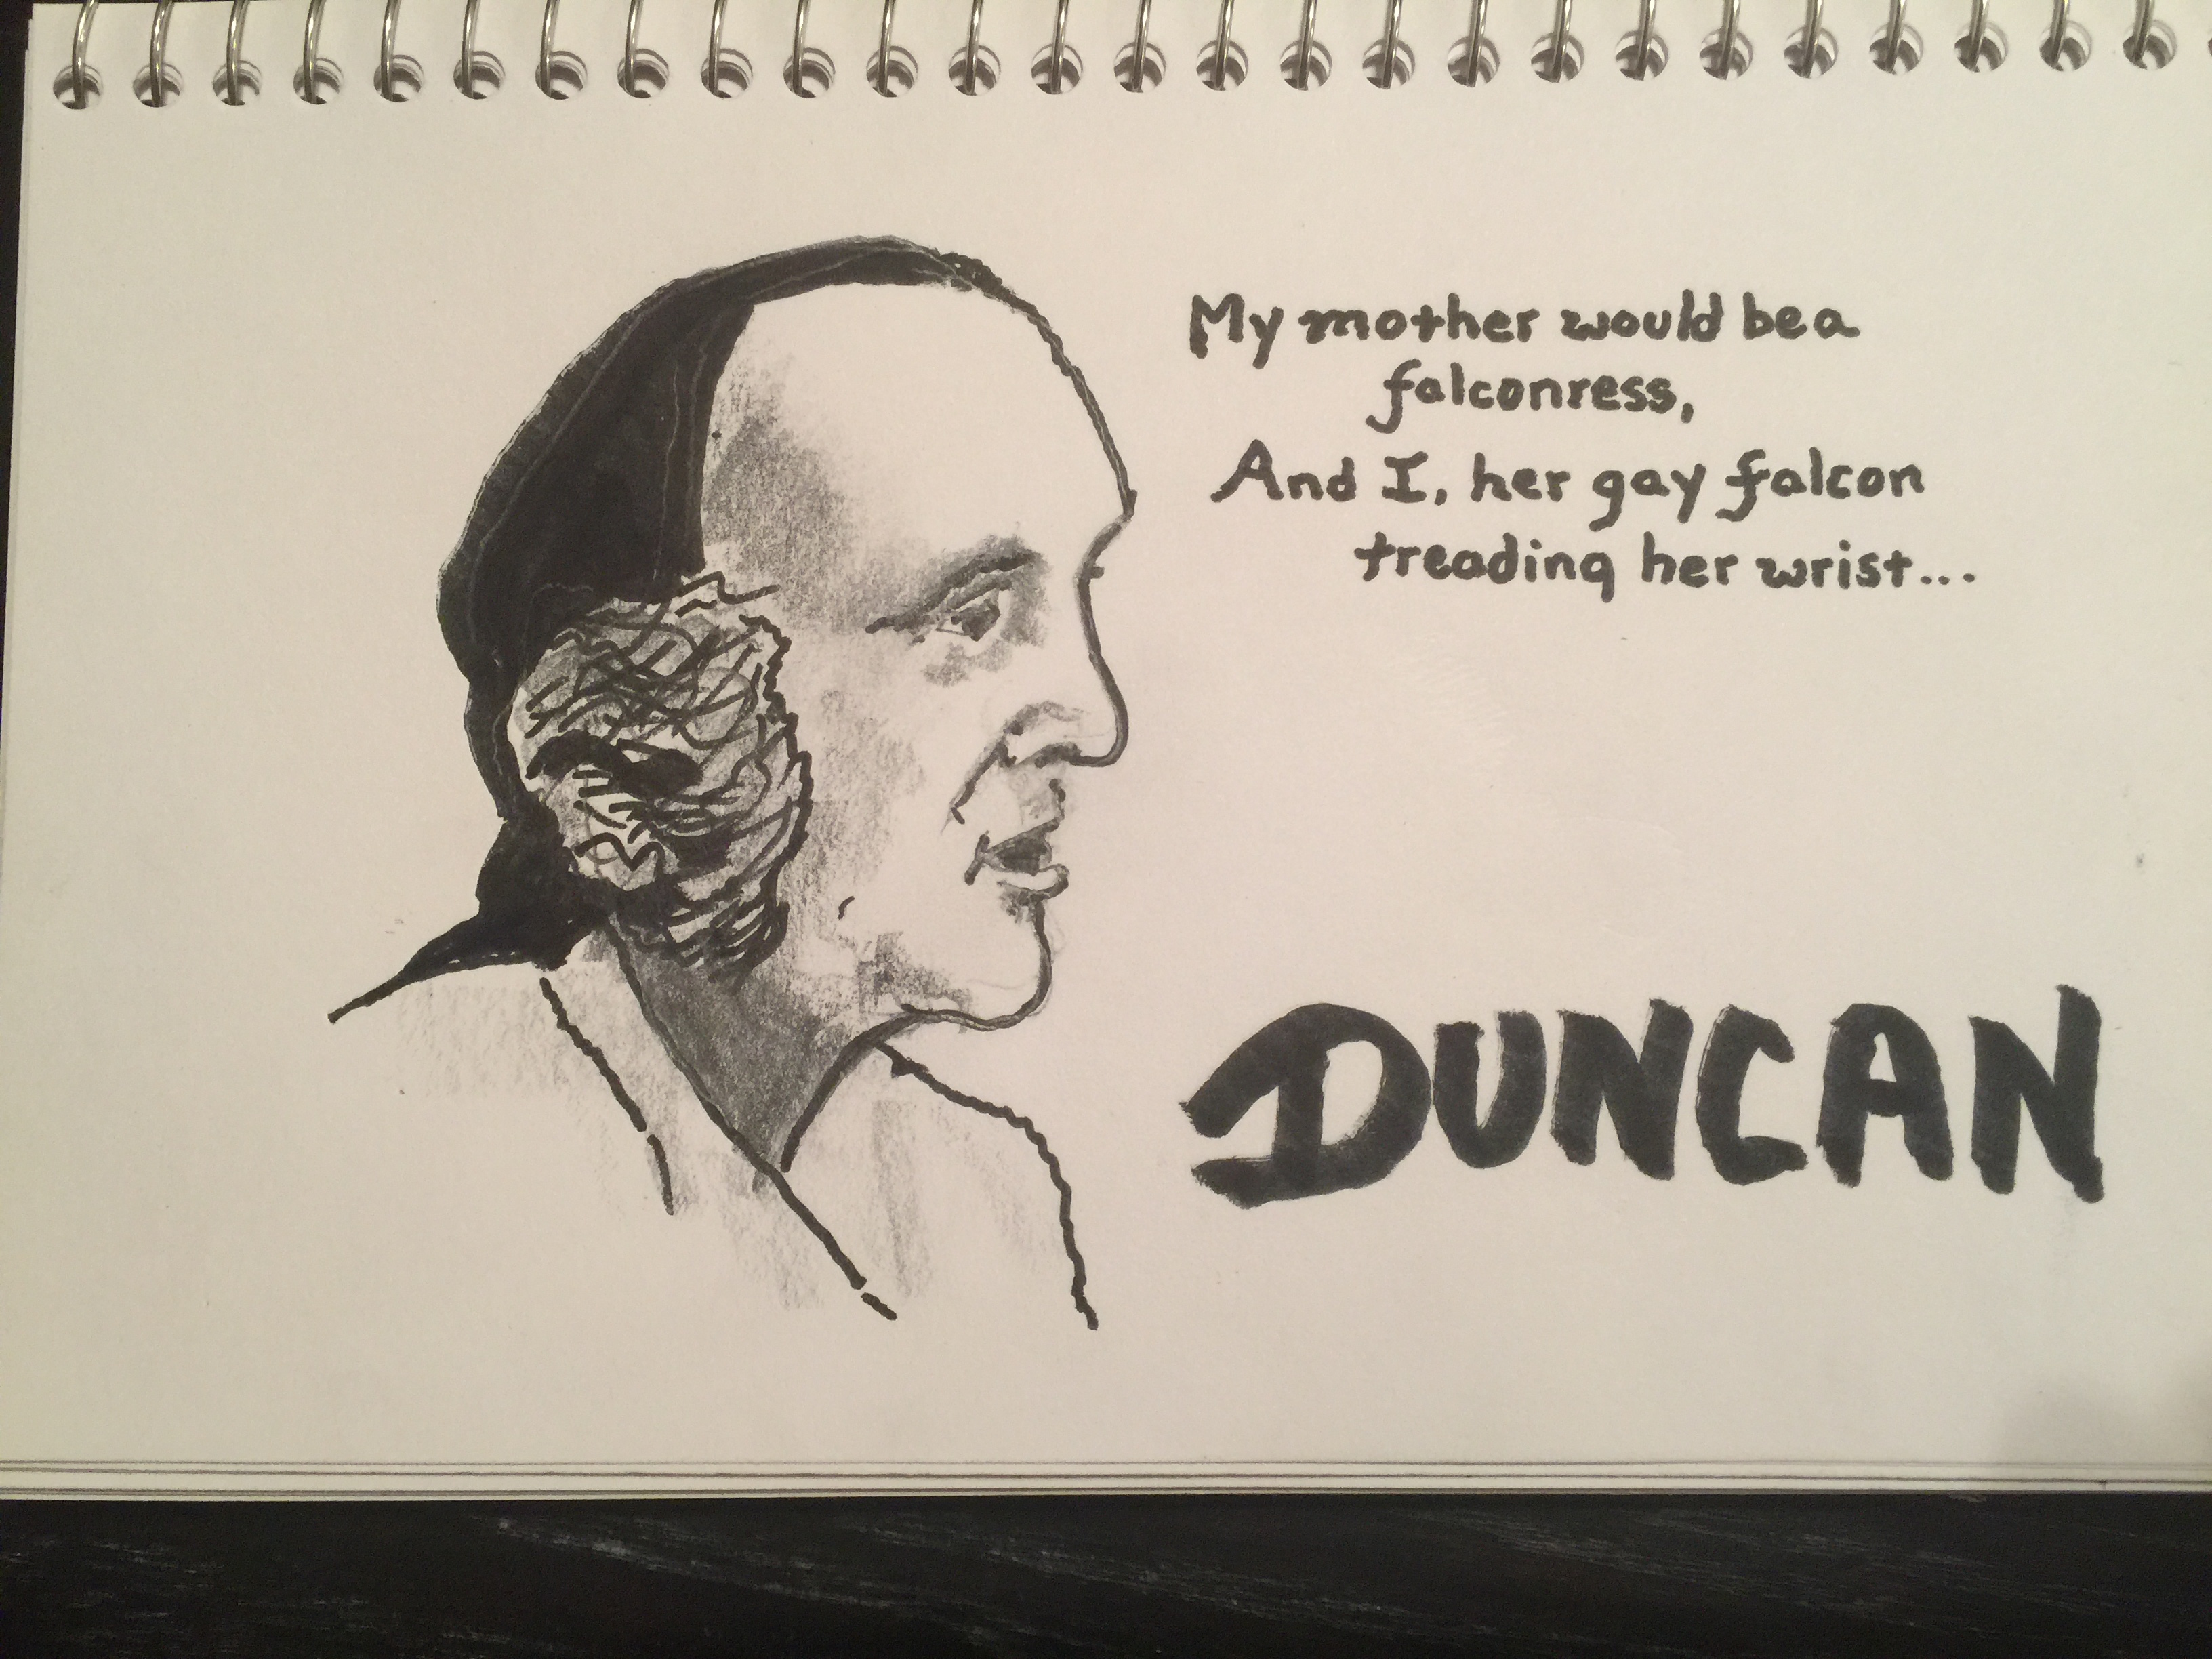 My mother would be a
falconress,
And I, her gay falcon
treading her wrist...
DUNCAN